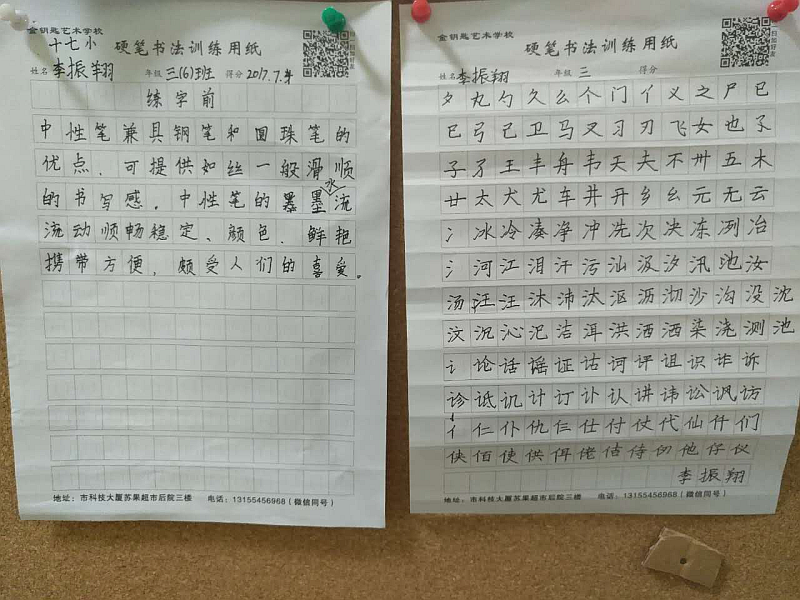 金钥匙艺术学校
十七小 硬笔书法训练用纸
扫码加好友
姓名 李振翔 年级 三(6)班 得分 2017.7.
练字前
中性笔兼具钢笔和圆珠笔的
优点，可提供如丝一般滑顺
的书写感。中性笔的墨墨水流
流动顺畅稳定、颜色、鲜艳
携带方便，颇受人们的喜爱。
地址：市科技大厦苏果超市后院三楼 电话：13155456968（微信同号）
金钥匙艺术学校
硬笔书法训练用纸
扫码加好友
姓名 李振翔 年级 三 得分
夕丸勺久么个门丫义之尸巳
已弓己卫马又习刃飞女也孑
子孑王丰舟韦天夫不卅五木
廿太犬尤车井开乡幺元无云
冫冰冷凑净冲冼次决冻冽冶
氵河江泪汗污汕汲汐汛池汝
汤汪汪沐沛汰沤沥沏沙沟没沈
汶沉沁汜洁洱洪洒洒染浇测池
讠论话谣证诂诃评诅识诈诉
诊诋讥计订讣认讲讳讼讽访
亻仁仆仇仨仕付仗代仙仟们
侠佰使供佴佬估侍仞他仔仪
李振翔
地址：市科技大厦苏果超市后院三楼 电话：13155456968（微信同号）